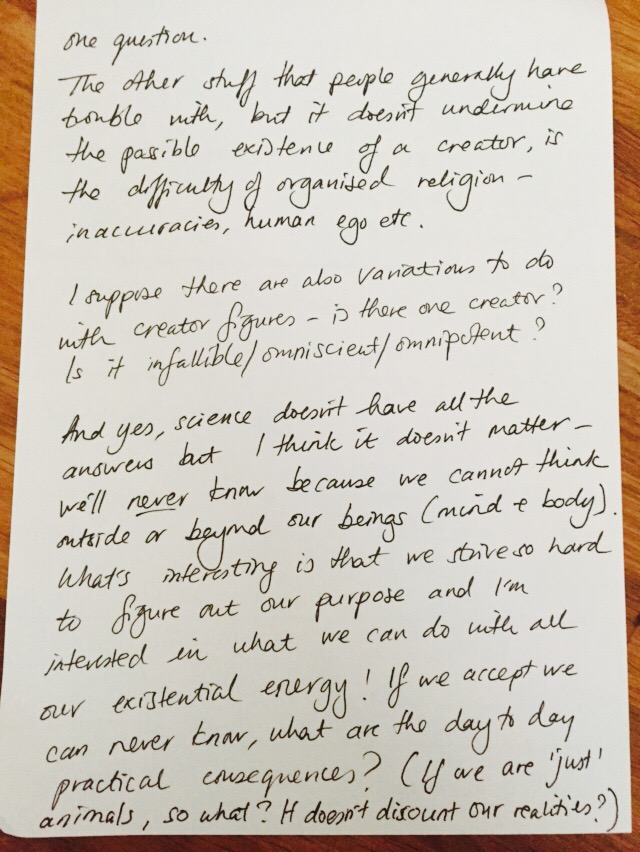 one question.
The other stuff that people generally have
trouble with, but it doesn't undermine
the possible existence of a creator, is
the difficulty of organised religion –
inaccuracies, human ego etc.
I suppose there are also variations to do
with creator figures – is there one creator?
Is it infallible/omniscient/omnipotent?
And yes, science doesn't have all the
answers but I think it doesn't matter –
we'll never know because we cannot think
outside or beyond our beings (mind + body).
What's interesting is that we strive so hard
to figure out our purpose and I'm
interested in what we can do with all
our existential energy! If we accept we
can never know, what are the day to day
practical consequences? (If we are 'just'
animals, so what? It doesn't discount our realities?)